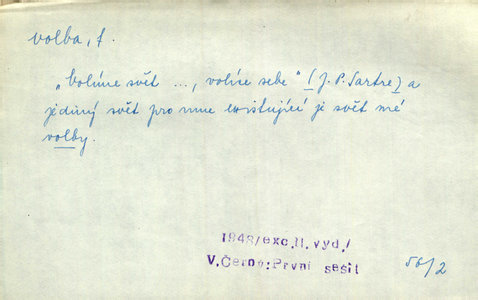 volba, f.
„Volíme svět ..., volíce sebe" (J. P. Sartre) a
jediný svět pro mne existující je svět mé
volby.
1948/exc.II.vyd./
V.Černý:První sešit
56/2